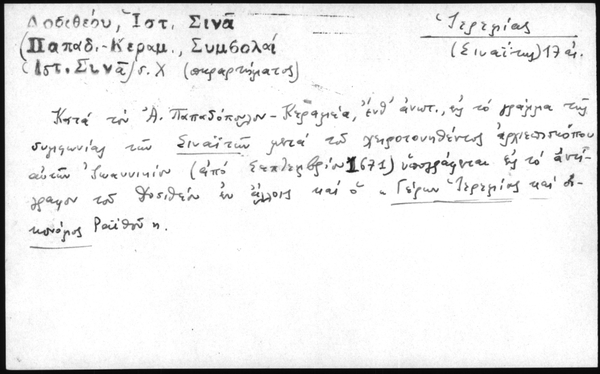 Δοσιθέου, Ἱστ. Σινᾶ
(Παπαδ.-Κεραμ., Συμβολαί
(Ἱστ. Σινᾶ) σ. Χ (παραρτήματος)
Ἱερεμίας
(Σιναΐτης) 17 αἰ.
Κατά τόν Ἀ. Παπαδόπουλον-Κεραμέα, ἔνθ' ἀνωτ., εἰς τό γράμμα τῆς
συμφωνίας τῶν Σιναϊτῶν μετά τοῦ χειροτονηθέντος ἀρχιεπισκόπου
αὐτῶν Ἰωαννικίου (ἀπό Σεπτεμβρίου 1671) ὑπογράφεται εἰς τό ἀντί-
γραφον τοῦ Δοσιθέου ἐν ἄλλοις καί ὁ "Γέρων Ἱερεμίας καί οἰ-
κονόμος Ραϊθοῦ".